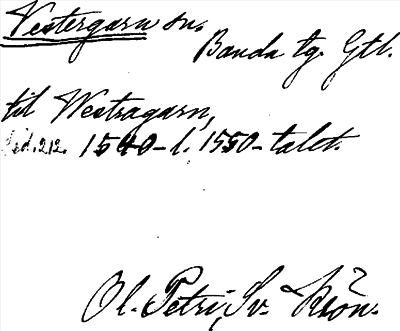 Vestergarn sn.
Banda tg. Gtl.
til Westragarn,
sid. 212. 1540- l. 1550-talet.
Ol. Petri, Sv. Krön.